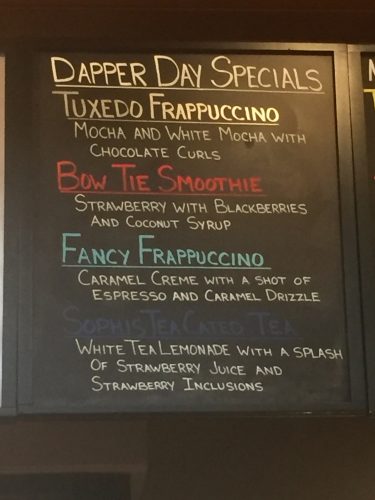 DAPPER DAY SPECIALS
TUXEDO FRAPPUCCINO
MOCHA AND WHITE MOCHA WITH
CHOCOLATE CURLS
BOW TIE SMOOTHIE
STRAWBERRY WITH BLACKBERRIES
AND COCONUT SYRUP
FANCY FRAPPUCCINO
CARAMEL CREME WITH A SHOT OF
ESPRESSO AND CARAMEL DRIZZLE
SOPHISTEACATED TEA
WHITE TEA LEMONADE WITH A SPLASH
OF STRAWBERRY JUICE AND
STRAWBERRY INCLUSIONS